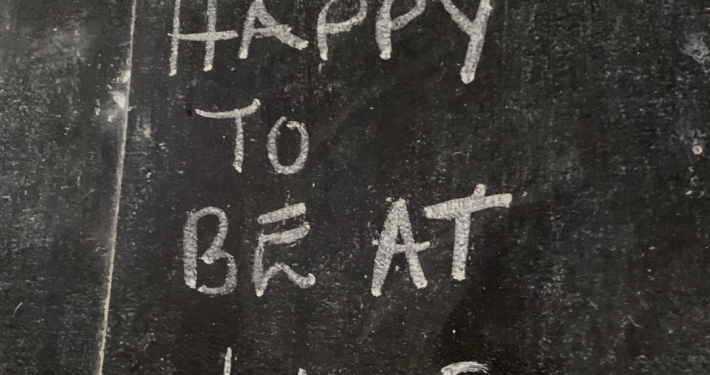 HAPPY
TO
BE AT